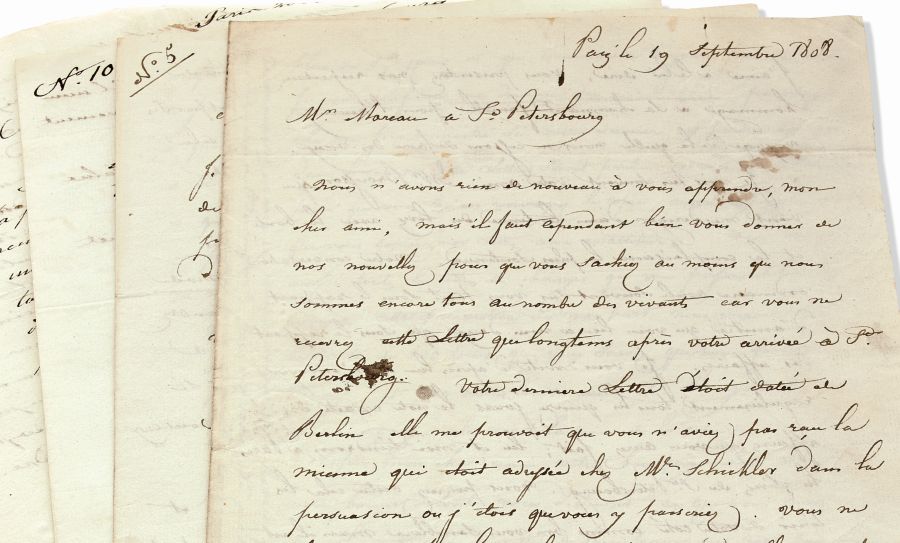 Paris
No. 10
No. 5
Paris le 19 Septembre 1808.
Mr. Moreau a St. Petersbourg
Nous n'avons rien de nouveau à vous apprendre, mon
cher ami, mais il faut cependant bien vous donner de
nos nouvelles pour que vous sachiez au moins que nous
sommes encore tous au nombre des vivants car vous ne
recevrez cette Lettre que longtems après votre arrivée à St.
Petersbourg. Votre derniere Lettre étoit datée de
Berlin elle me prouvoit que vous n'aviez pas reçu la
mienne qui étoit adressée chez Mrs. Schickler dans la
persuasion ou j'étois que vous y passeriez. Vous ne